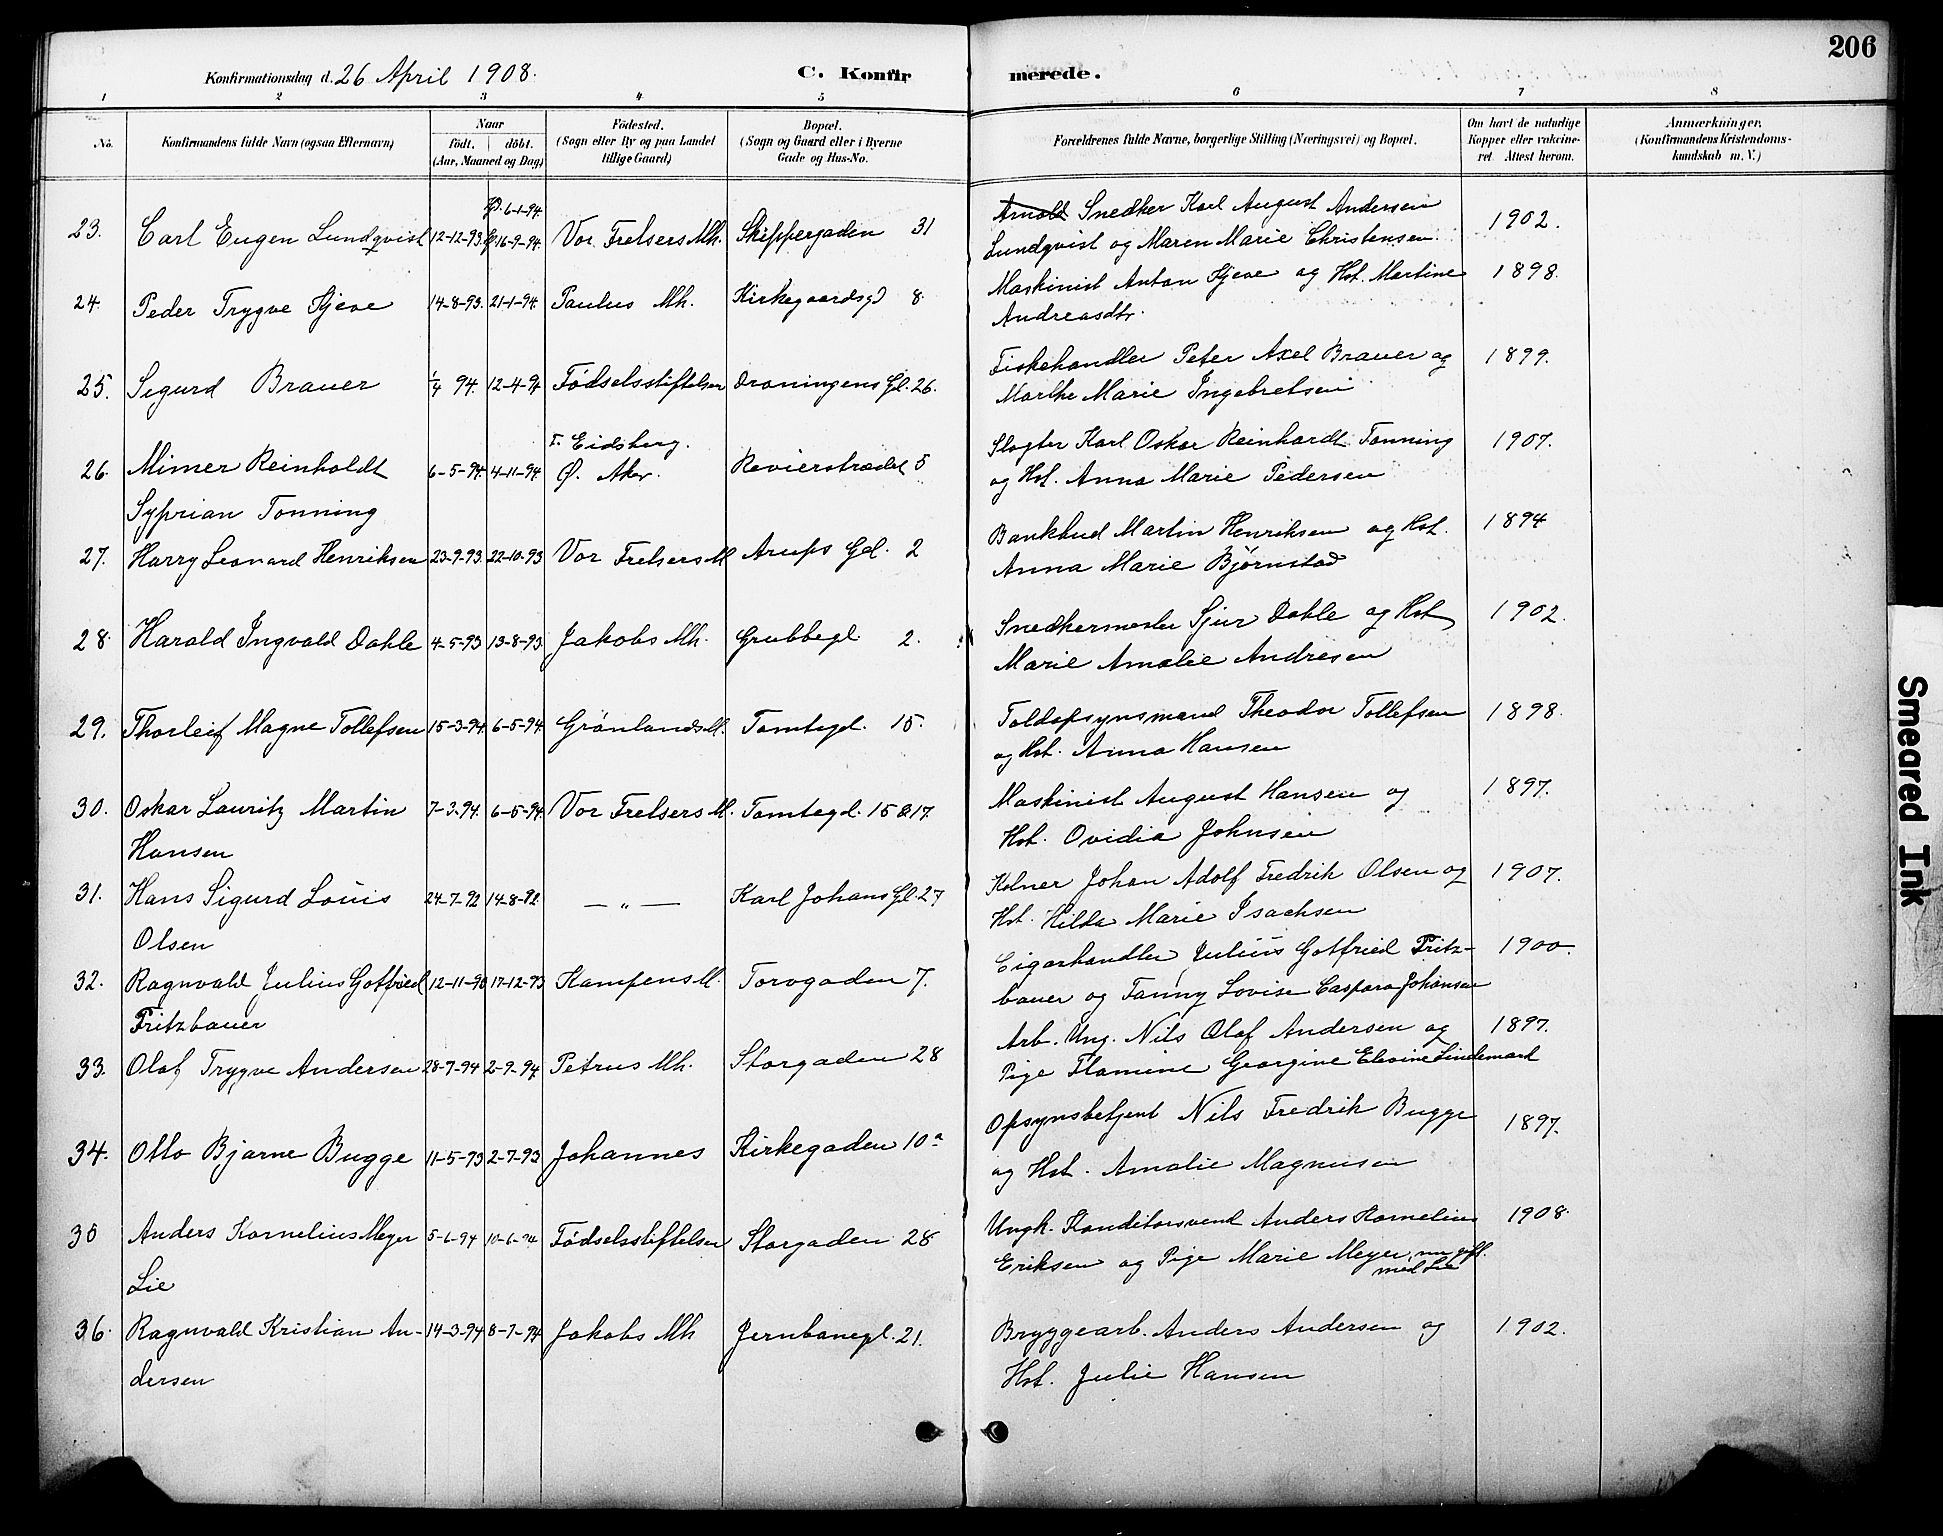 206
Konfirmationsdag d. 26 April 1908.
C. Konfirmerede.
1 2 3 4 5 6 7 8
No.
Konfirmandens fulde Navn (ogsaa Efternavn)
Naar
födt. döbt.
(Aar, Maaned og Dag)
Födested.
(Sogn eller By og paa Landet
tillige Gaard)
Bopæl.
(Sogn og Gaard eller i Byerne
Gade og Hus-No.
Forældrenes fulde Navne, borgerlige Stilling (Næringsvei) og Bopæl.
Om havt de naturlige
Kopper eller vakcine-
ret. Attest herom.
Anmærkninger,
(Konfirmandens Kristendoms-
kundskab m. V.)
23. Carl Eugen Lundqvist 12-12-93. 6-1-94. 16-9-94. Vor Frelsers Mh. Skippergaden 31
Arnold Snedker Karl August Andersen 1902.
Lundqvist og Maren Marie Christensen.
24. Peder Trygve Hjeve 14-8-93. 21-1-94. Paulus Mh. Kirkegaardsgd 8
Maskinist Anton Hjeve og Hst. Martine 1898.
Andreasdtr.
25. Sigurd Brauer 1/4 94. 12-4-94 Födselsstiftelsen Droningens Gd. 26.
Fiskehandler Peter Axel Brauer og 1899.
Marthe Marie Ingebretsen
26. Mimer Reinholdt 6-5-94. 4-11-94 T. Eidsberg.
Ø. Aker. Revierstrædet 5
Syprian Tonning
Slagter Karl Oskar Reinhardt Tonning 1907.
og Hst. Anna Marie Pedersen
27. Harry Leonard Henriksen 23-9-93. 22-10-93 Vor Frelsers M Arups Gd. 2
Bankbud Martin Henriksen og Hst. 1894
Anna Marie Björnstad
28. Harald Ingvald Dahle 4-5-93 13-8-93. Jakobs Mh. Grubbegd. 2.
Snedkermester Sjur Dahle og Hst 1902.
Marie Amalie Andresen
29. Thorleif Magne Tollefsen 15-3-94. 6-5-94. Grönlands M. Tomtegd. 15.
Toldopsynsmand Theodor Tollefsen 1898.
og Hst. Anna Hansen
30. Oskar Lauritz Martin 7-3-94. 6-5-94. Vor Frelsers M. Tomtegd. 15 & 17.
Hansen
Maskinist August Hansen og 1897.
Hst. Ovidia Johnsen
31. Hans Sigurd Louis 24-7-92 14-8-92. — „ — Karl Johans Gd. 27
Olsen
Kelner Johan Adolf Fredrik Olsen og 1907.
Hst. Hilda Marie Isachsen
32. Ragnvald Julius Gotfried 12-11-93 17-12-93 Kampens M. Torvgaden 7.
Fritzbauer
Cigarhandler Julius Gotfried Fritz- 1900.
bauer og Fanny Lovise Caspara Johansen
33. Olaf Trygve Andersen 28-7-94 2-9-94. Petrus Mh. Storgaden 28
Arb. Ung. Nils Olaf Andersen og 1897.
Pige Flamine Georgine Elevine Lindemark
34. Otto Bjarne Bugge 11-5-93 2-7-93 Johannes Kirkegaden 10 a
Opsynsbetjent Nils Fredrik Bugge 1897.
og Hst. Amalie Magnusen
35 Anders Kornelius Meyer 5-6-94 10-6-94 Födselsstiftelsen Storgaden 28
Lie
Ungk. Konditorsvend Anders Kornelius 1908.
Eriksen og Pige Marie Meyer nu gift.
med Lie
36. Ragnvald Kristian An- 14-3-94 8-7-94 Jakobs Mh Jernbanegd. 21.
dersen
Bryggearb. Anders Andersen og 1902.
Hst. Julie Hansen
Smeared Ink